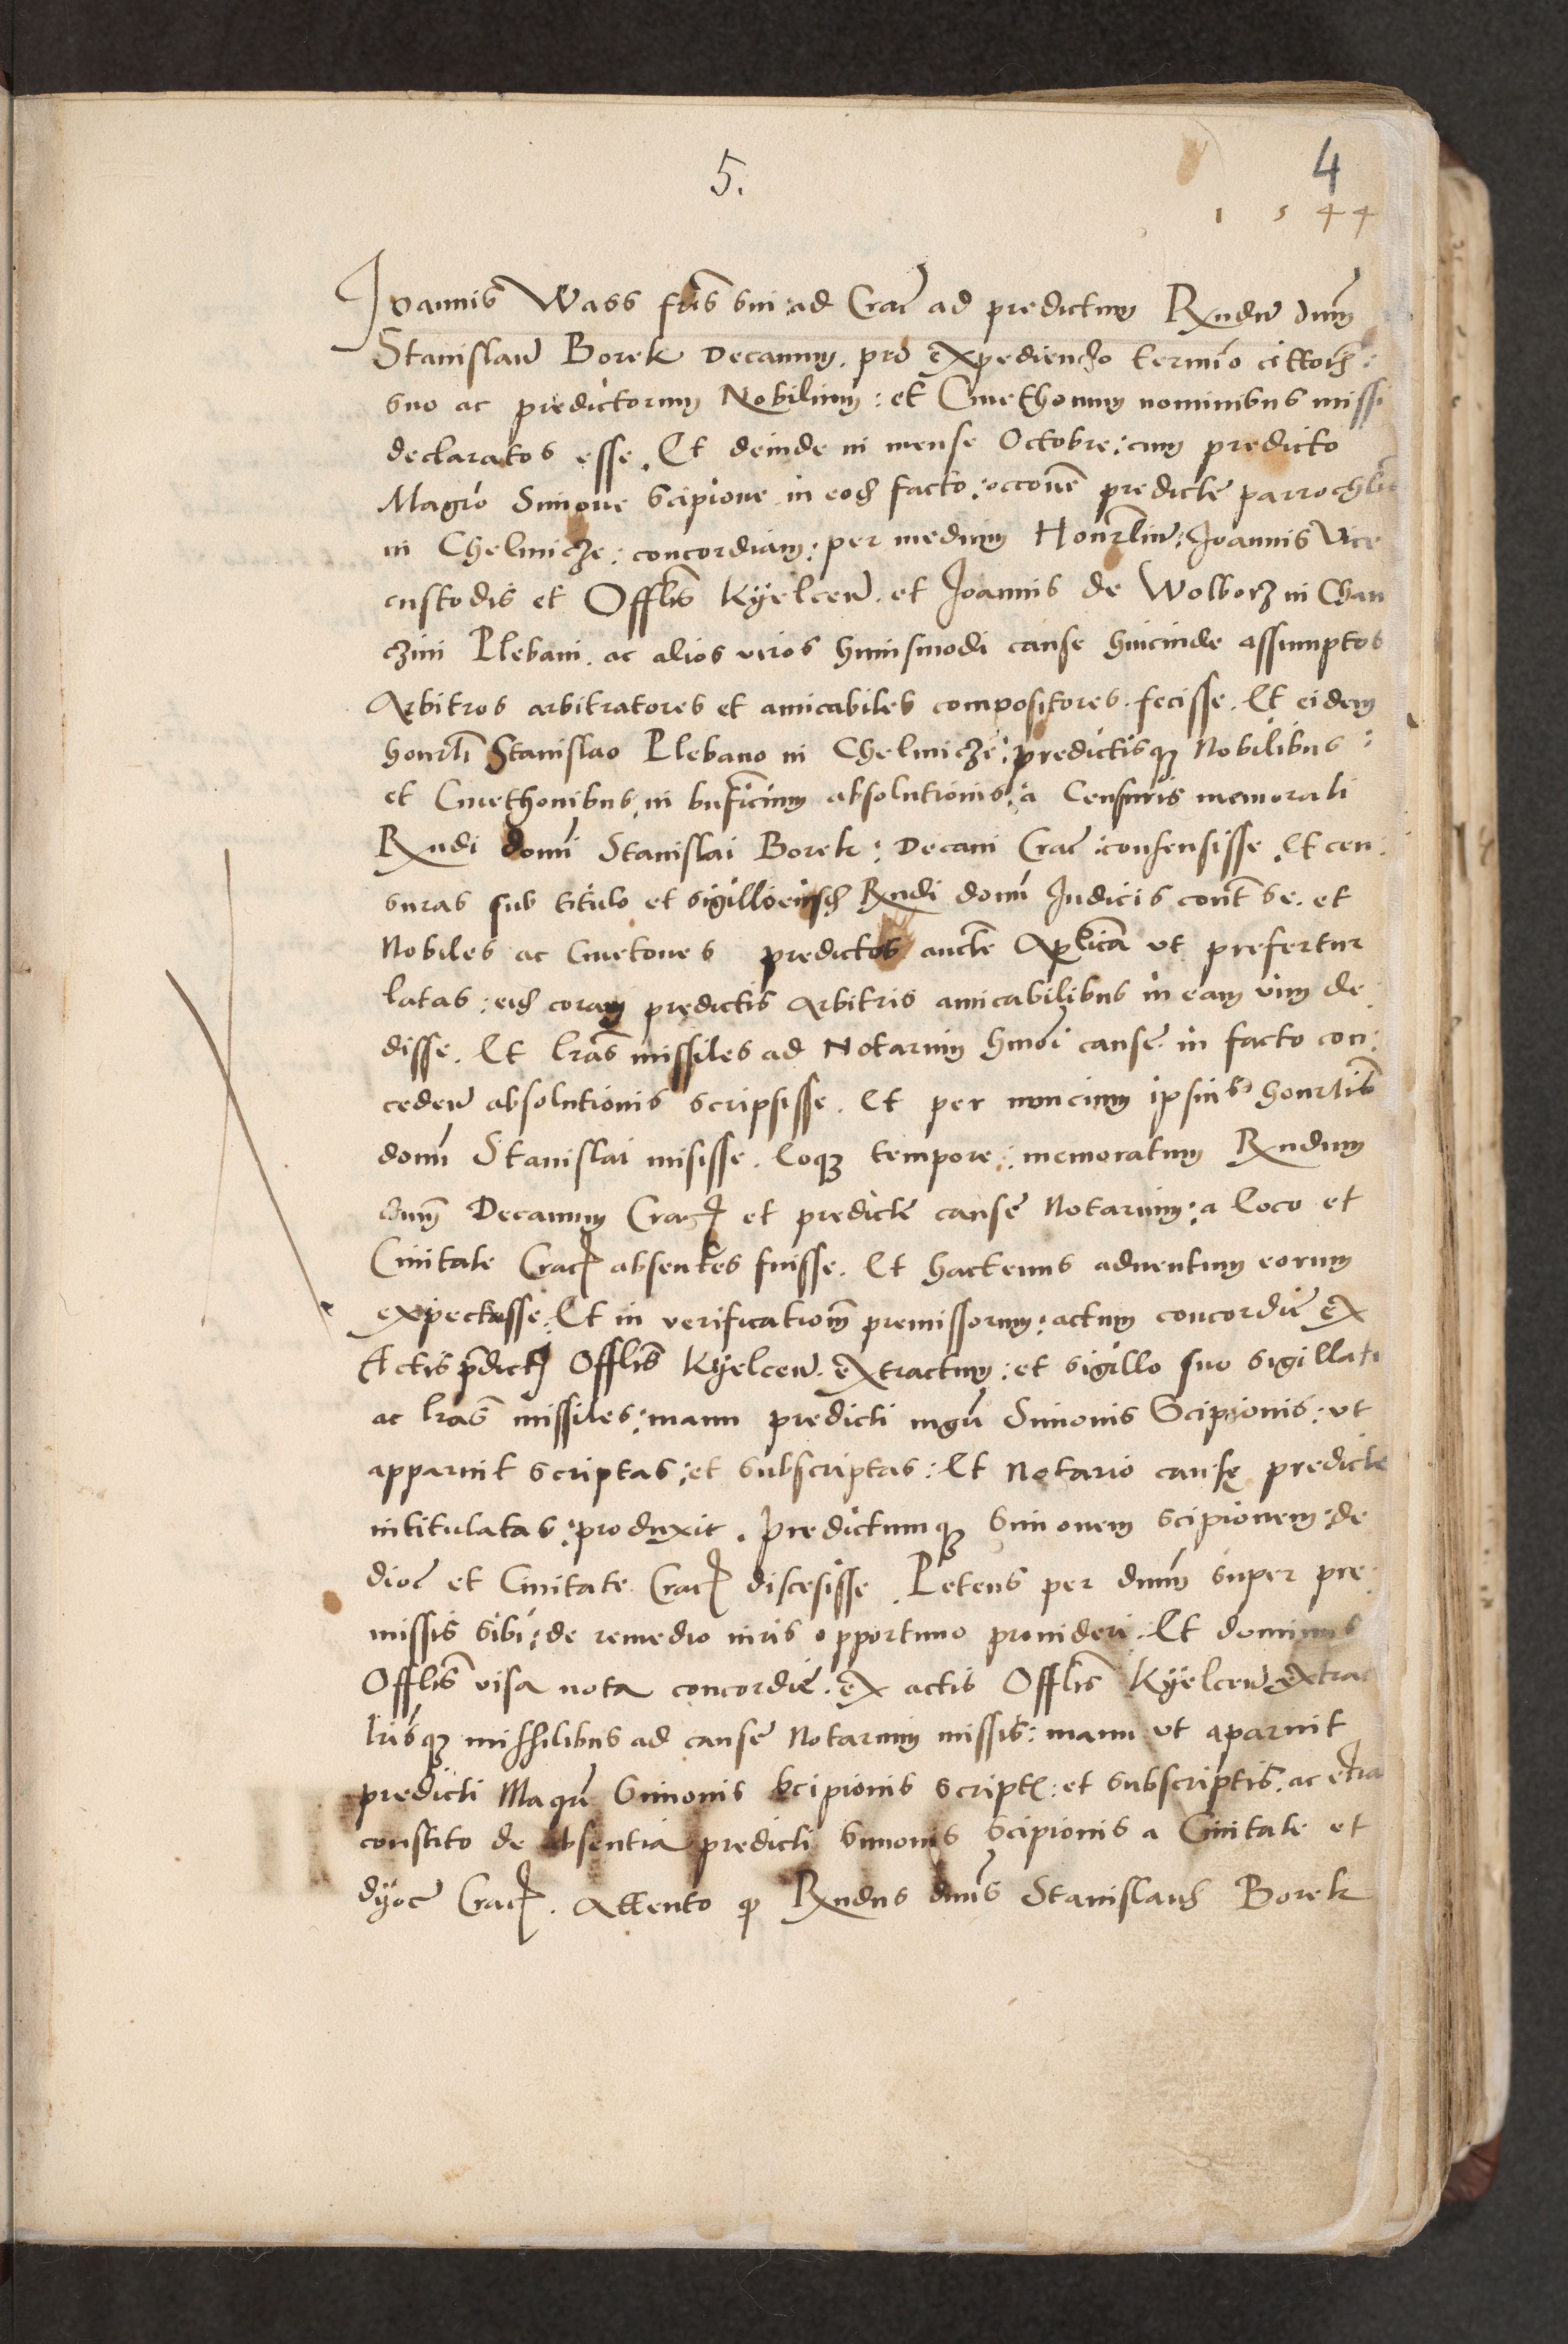 5.
4
1 5 4 4
Joannis Wass fris sui ad Crac ad predictum Rndu Dnm
Stanislau Borek Decanum. pro expediendo termino
suo ac predictorum Nobilium: et Cmethonum nominibus missi
declaratos esse. Et deinde in mense Octobre: cum predicto
Magro Simone Scipione in eod facto: predicte
in Chelmicze: concordiam: per medium Honrliu: Joannis Vice
custodis et Offlis Kÿelceñ. et Joannis de Wolborz in Chan
czini Plebani. ac alios viros huiusmodi cause hincinde assumptos
Arbitros arbitratores et amicabiles compositores fecisse. Et eidem
honrli Stanislao Plebano in Chelmicze: predictisqz Nobilibus:
et Cmethonibus, in absolutionis: a Censuris memorati
Rndi domi Stanislai Borek: Decani Crac: consensisse. Et cen:
suras sub titulo et sigillo eiusd Rndi domi Judicis cont se. et
Nobiles ac Cmetones predictos aucte Aplica ut prefertur
latas: eid coram predictis Arbitris amicabilibus in eam vim de:
disse. Et lras missiles ad Notarium hmoi cause in facto con:
cedeñ absolutionis scripsisse. Et per nuncium ipsius honrlis
domi Stanislai misisse. Eoqz tempore: memoratum Rndum
dnm Decanum Crac et predicte cause Notarium: a loco et
Ciuitate Crac absentes fuisse. Et hactenus aduentum eorum
expectasse: Et in verificationem premissorum: actum concordie ex
Actis pdict Offlis Kÿelceñ. extractum: et sigillo suo sigillatu
ac lras missiles: manu predicti mgri Simonis Scipionis: ut
apparuit scriptas: et subscriptas: Et Notario cause predicte
intitulatas: produxit. predictumqz Simonem scipionem: de
dioc et Ciuitate Crac discesisse. Petens per dnum super pre:
missis sibi: de remedio iuris opportuno prouideri. Et dominus
Offlis visa nota concordie. ex actis Offlis Kÿelceñ extrac
lrisqz missilibus ad cause Notarium missis: manu ut aparuit
predicti Magri Simonis Scipionis script: et subscriptis. ac etia
constito de absentia predicti Simonis Scipionis a Ciuitate et
dÿoc Crac. Attento qp Rndus dnus Stanislaus Borek